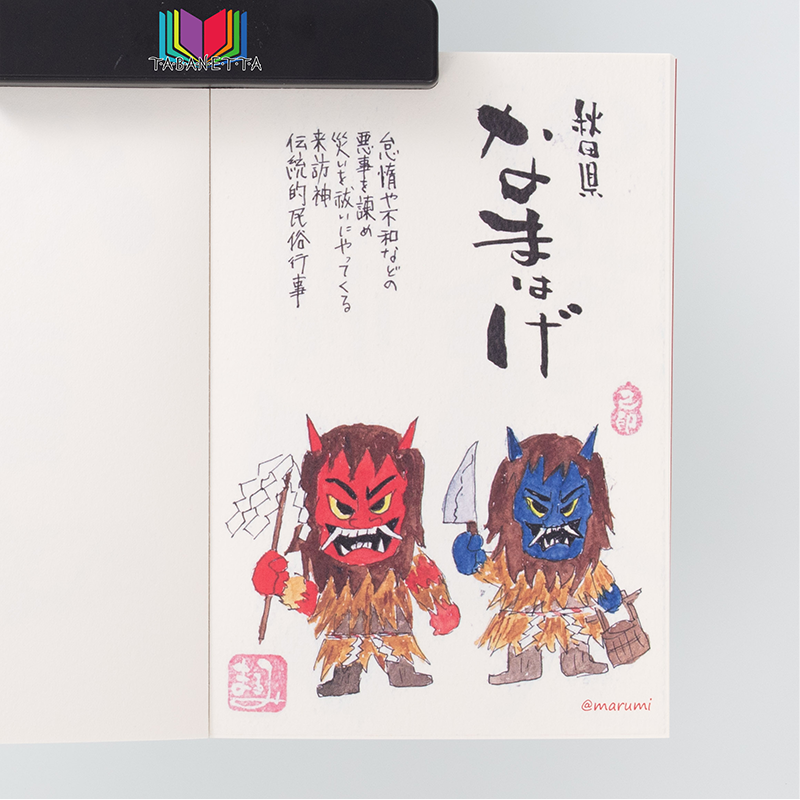 T·A·B·A·N·E·T·T·A
秋田県
なまはげ
怠惰や不和などの
悪事を諫め
災いを祓いにやってくる
来訪神
伝統的民俗行事
@marumi